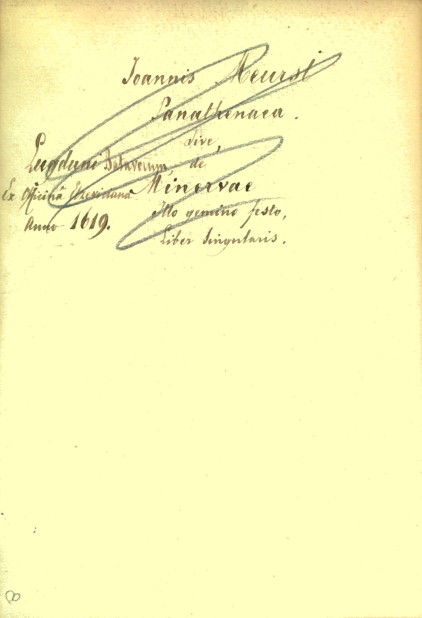 Joannis Meursi
Panathenaea.
Sive,
de
Minervae
illo gemino festo,
Liber singularis.
Lugduno Batavorum,
Ex Officinâ Elzeviriana
Anno 1619.